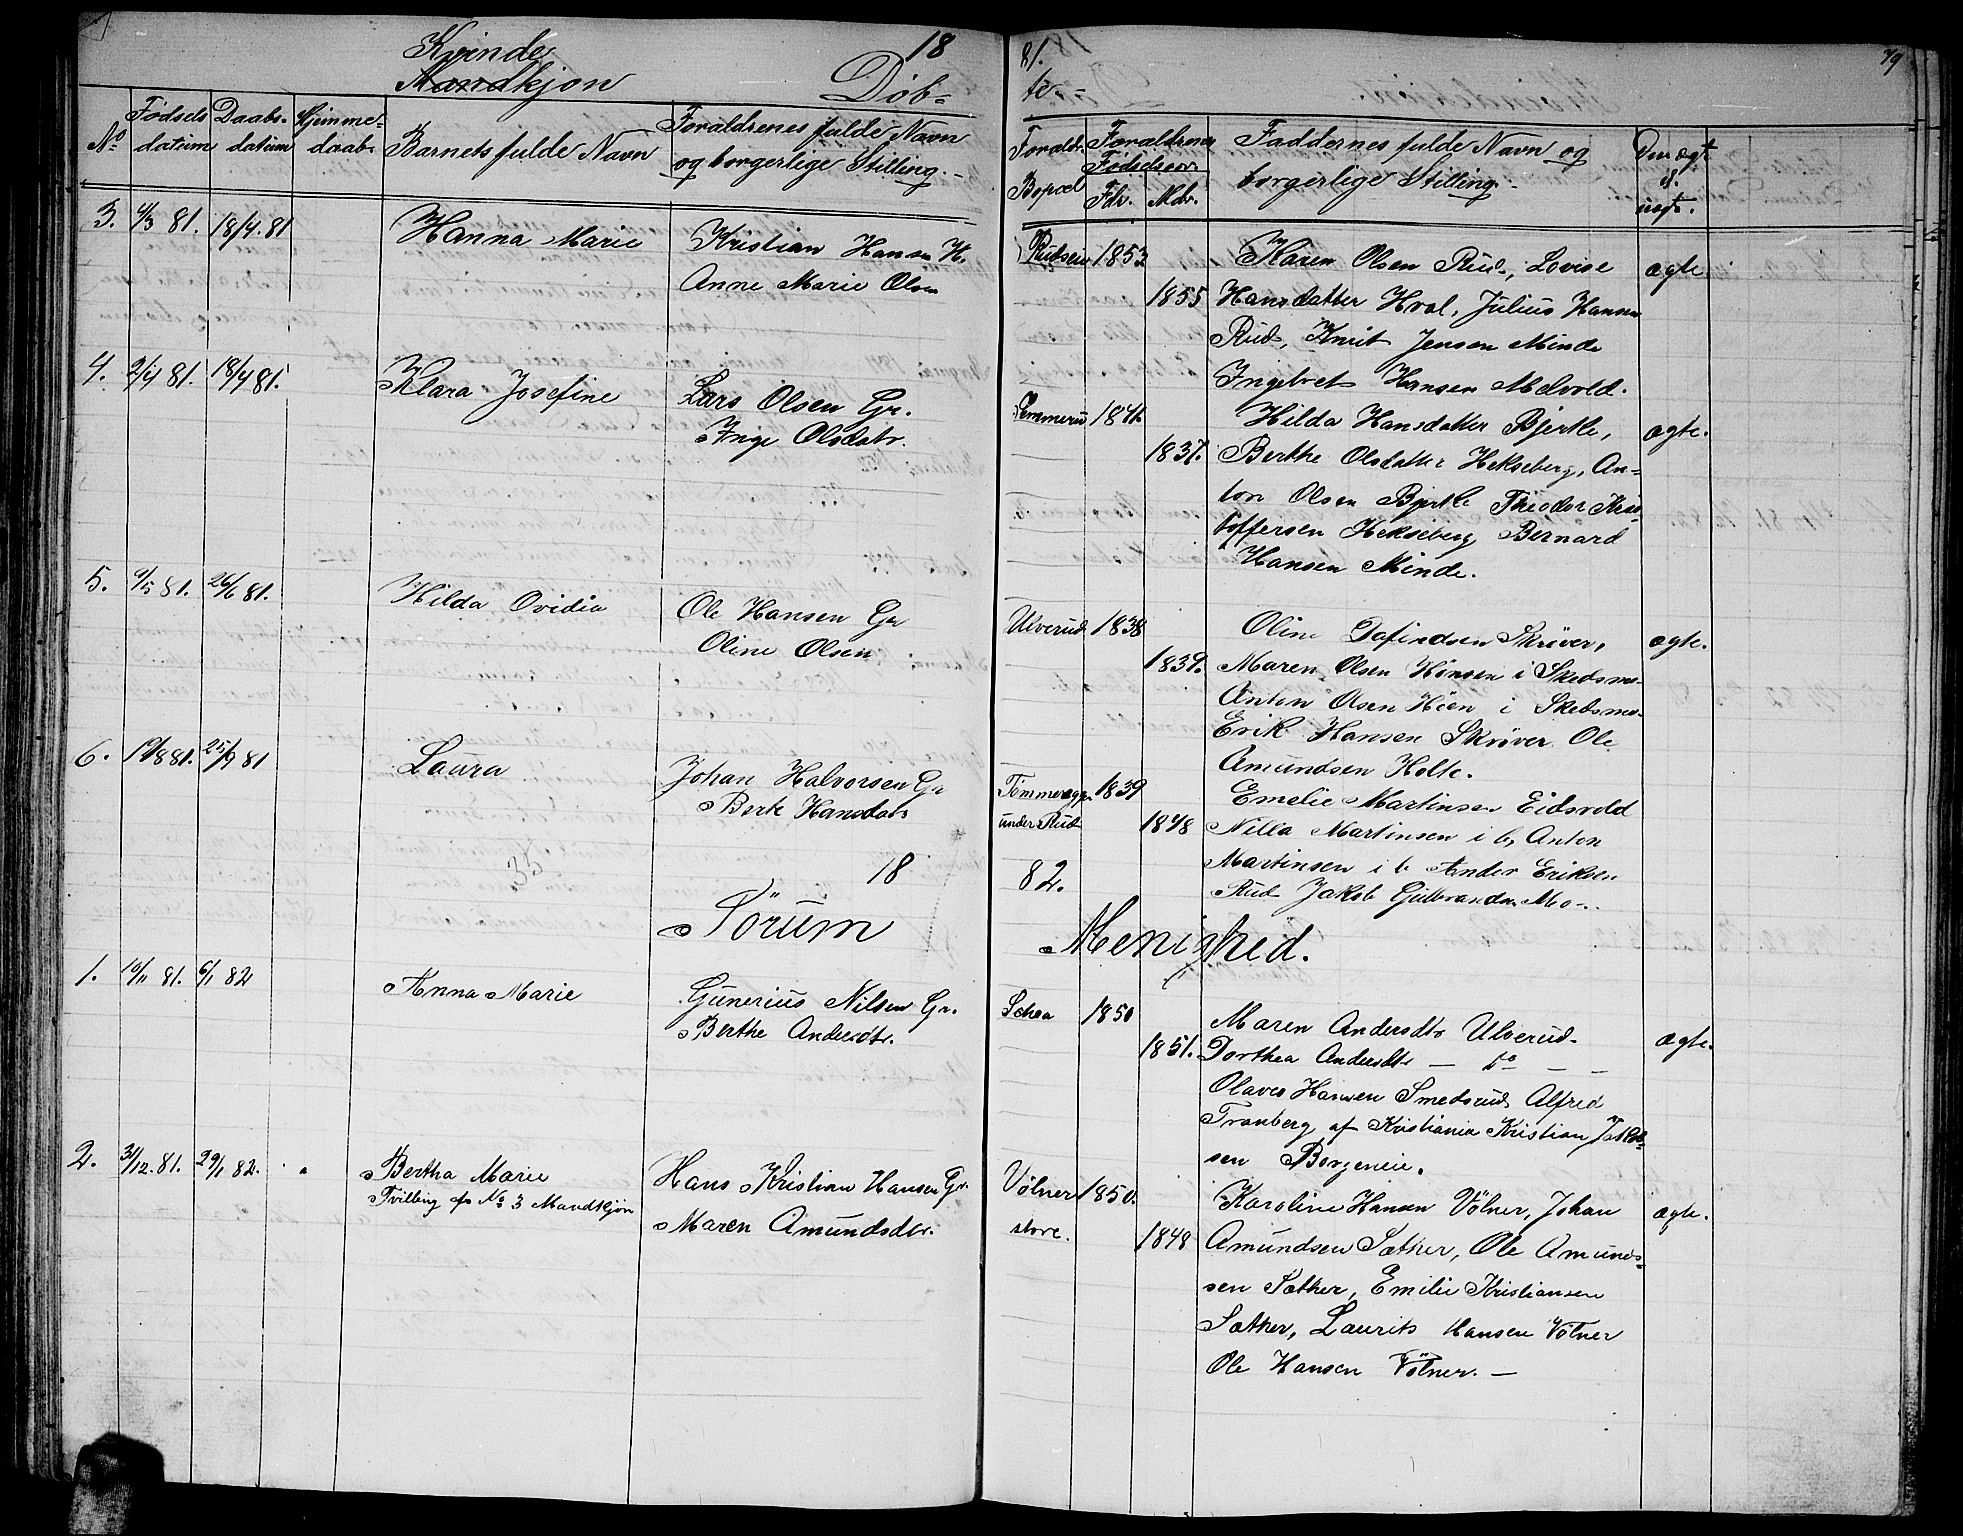 Kvinde
Mandkjøn
18
81.
79
Døb-
te-
No
Fødsels datum
Daabs- datum
Hjemme- daab
Barnets fulde Navn
Forældrenes fulde Navn og borgerlige Stilling.
Foræld. Bopæl
Forældrenes Fødselsaar
Fdr.
Mdr.
Faddernes fulde Navn og borgerlige Stilling.
Om ægt. el. uægt.
3.
4/3 81.
18/4.81
Hanna Marie
Kristian Hansen H.
Anne Marie Olsen
1853
1855
Karen Olsen Rud, Lovise
Hansdatter Hval, Julius Hansen
Rud, Knut Jensen Minde
Ingebret Hansen Melvold.
ægte
4.
2/4 81.
18/4 81.
Klara Josefine
Lars Olsen Gr.
Inge Olsdatr.
1837.
Hilda Hansdatter Bjerke,
Berthe Olsdatter Hekseberg, An-
ton Olsen Bjerke Theodor Kris-
toffersen Hekseberg Bernard
Hansen Minde.
ægte.
5.
9/5 81.
26/6 81.
Hilda Ovidia
Ole Hansen Gr
Oline Olsen
Ulverud
1838
1839.
Oline Dafindsen Skrøver,
Maren Olsen Hønsen i Skedsmo
Anton Olsen Høen i Skedsmo
Erik Hansen Skrøver Ole
Amundsen Holte.
ægte.
6.
19/8 81.
25/9 81
Laura
Johan Halvorsen Gr
Berte Hansdatr
under Rud
1839
1848
Emelie Martinsen Eidsvold
Nilla Martinsen i b, Anton
Martinsen i b Ander Eriksen
Rud Jakob Gulbrandsn Mo-.
35
18
82.
Sørum
Menighed.
1.
10/11 81.
6/1 82
Anna Marie
Gunerius Nilsen Gr.
Berthe Andersdtr.
1850
1851.
Maren Andersdtr Ulverud-
Dorthea Andersdtr — do — —
Olaves Hansen Smedsrud, Alfred
Tranberg af Kristiania Kristian Jakob-
sen Borgeneie.
ægte.
2.
31/12.81.
29/1 82.
Bertha Marie
Tvilling af No 3 Mandkjøn
Hans Kristian Hansen Gr.
Maren Amundsdtr.
Vølner
store.
1850.
1848
Karoline Hansen Vølner, Johan
Amundsen Sæther, Ole Amund-
sen Sæther, Emilie Kristiansen
Sæther, Laurits Hansen Vølner
Ole Hansen Vølner. —
ægte.